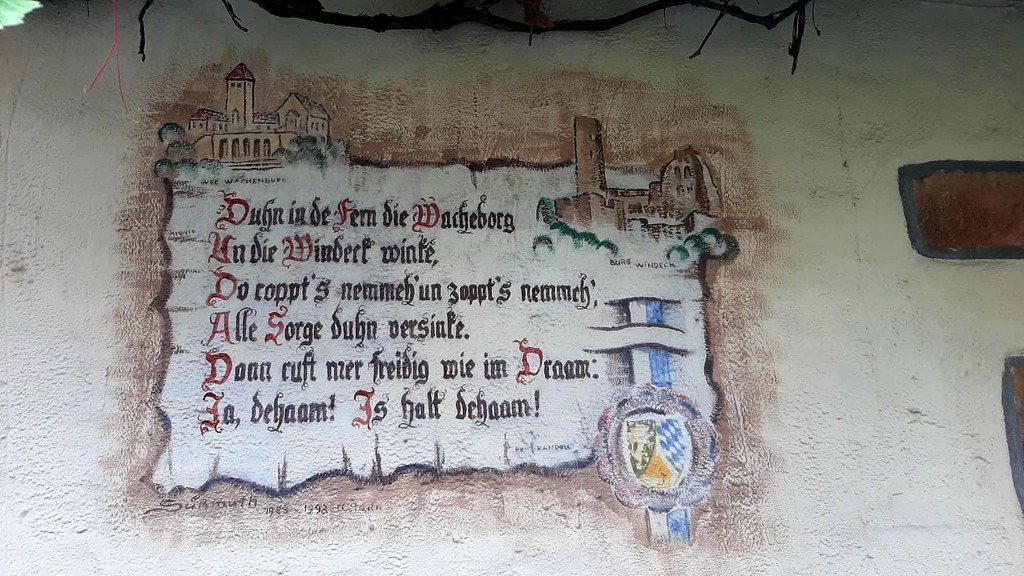 WSC WACHENBURG
Duhn in de Fern die Wacheborg
BURG WINDECK
Un die Windeck winke,
Do roppt's nemmeh' un zoppt's nemmeh',
Alle Sorge duhn versinke.
Donn ruft mer freidig wie im Draam:
Ja, dehaam! Is halt dehaam!
Süßmuth 1983 - 1993